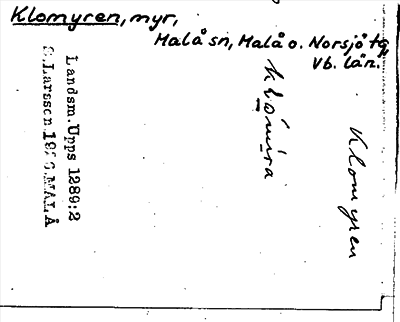 Klomyren, myr,
Malå sn, Malå o. Norsjö tg
Vb. län.
Klomyren
Landsm. Upps 1289:2
C. Larsson MALÅ